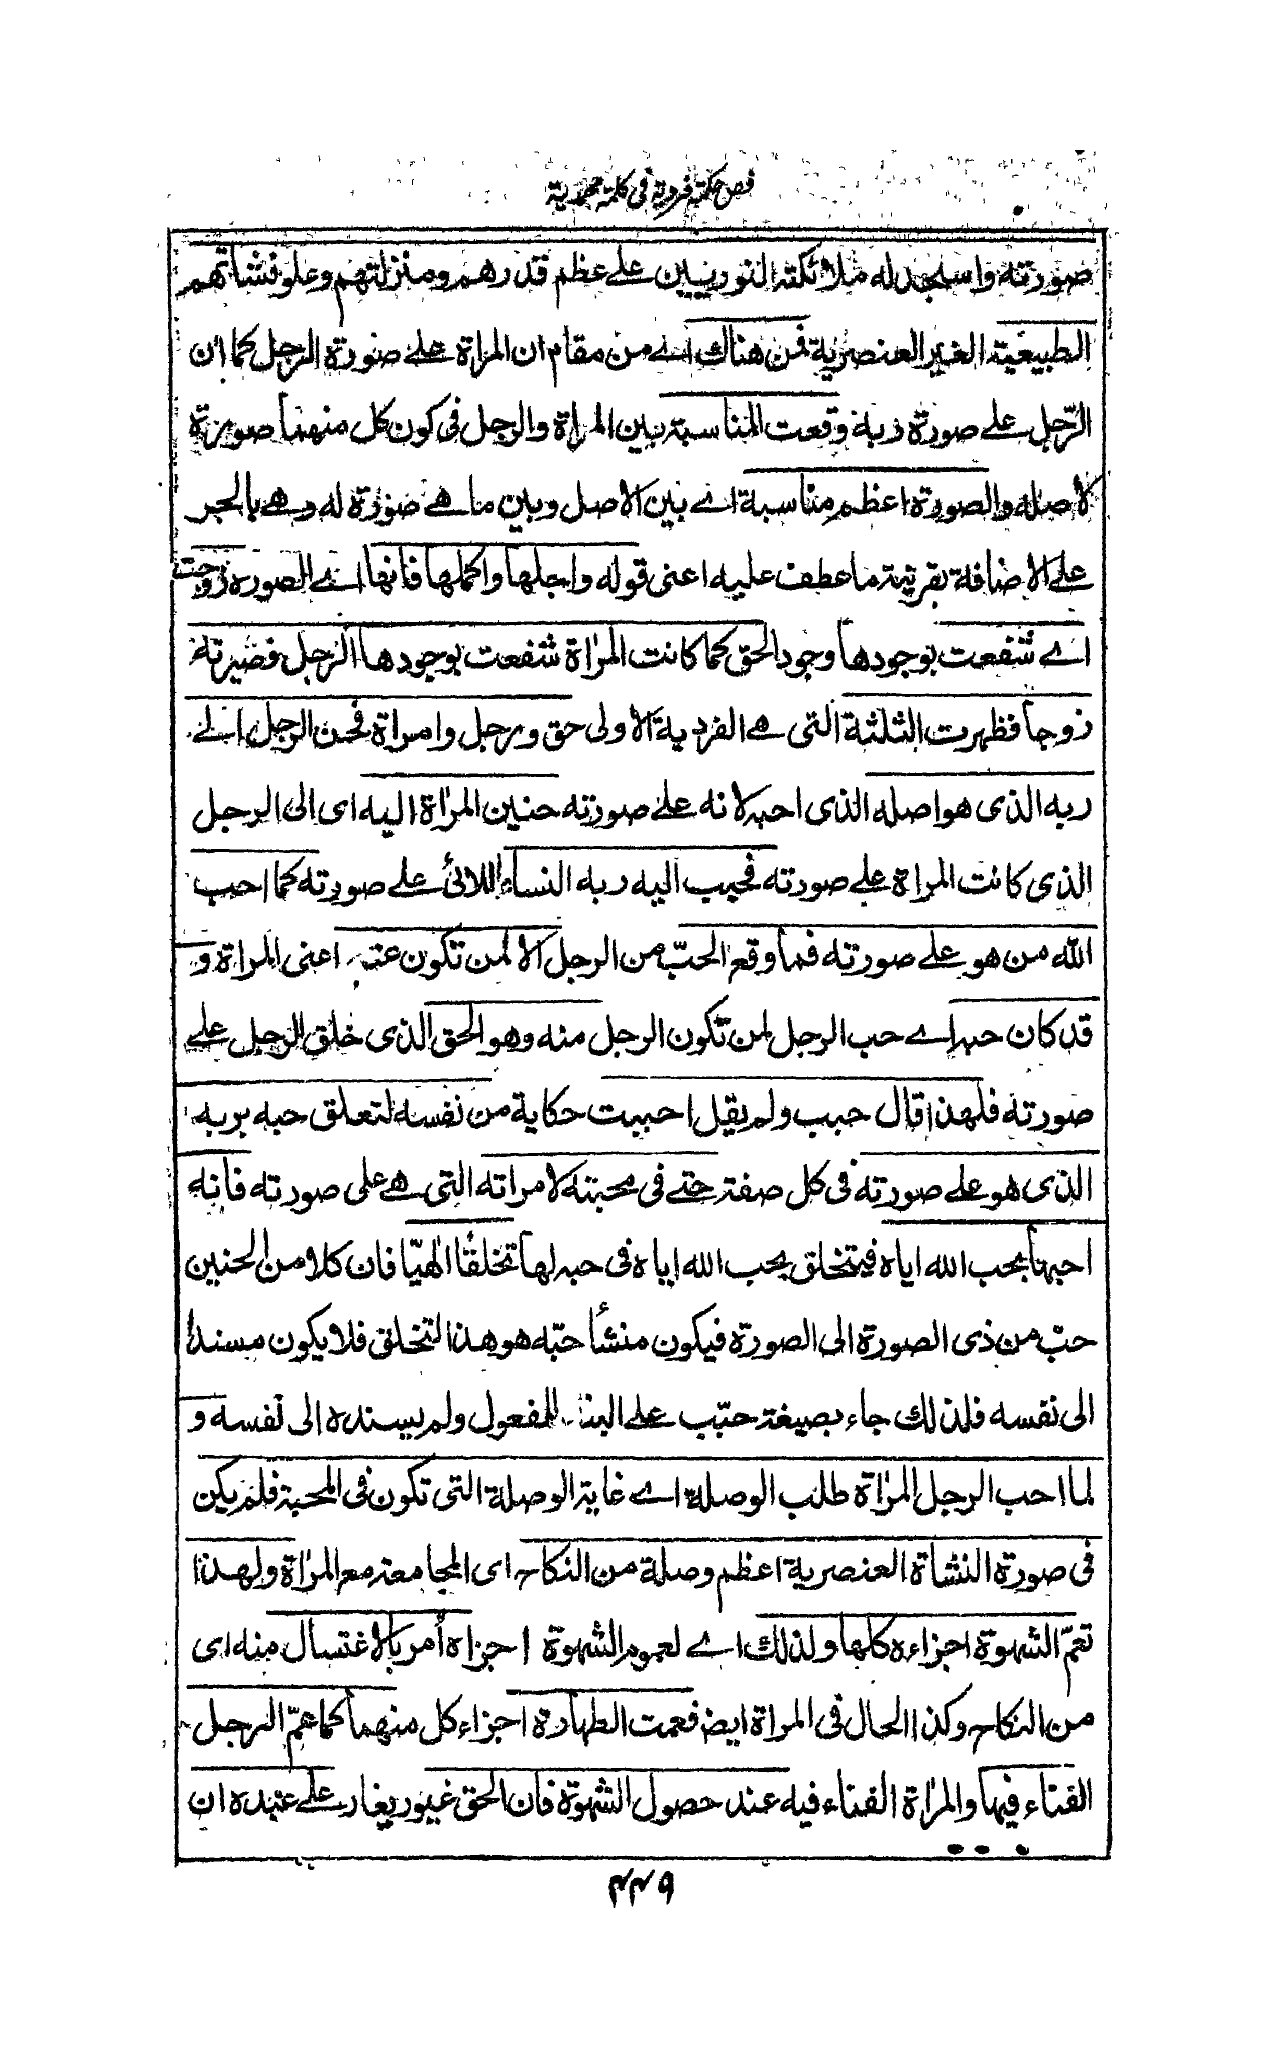 فص حكمة فردية في كلمة محمدية
صورته واسجد له ملائكته النوريين على عظم قدرهم ومنزلتهم وعلو نشأتهم
الطبيعية الغير العنصرية فمن هناك اے من مقام ان المرأة على صورة الرجل كما ان
الرّجل على صورة ربه وقعت المناسبة بين المرأة والرجل في كون كل منهما صورة
لاصله والصورة اعظم مناسبة اے بين الاصل وبين ما هے صورة له وهے بالجر
على الاضافة بقرينة ما عطف عليه اعنى قوله واجلها واكملها فانها اے الصورة زوجت
اے شفعت بوجودها وجود الحق كما كانت المرأة شفعت بوجودها الرجل فصيرته
زوجا فظهرت الثلثة التى هے الفردية الاولى حق ورجل وامرأة فحن الرجل الے
ربه الذى هو اصله الذى احبه لانه على صورته حنين المرأة اليه اى الى الرجل
الذى كانت المرأة على صورته فحبب اليه ربه النساء اللائى على صورته كما احب
الله من هو على صورته فما وقع الحبّ من الرجل الا لمن تكون عنه اعنى المرأة و
قد كان حبه اے حب الرجل لمن تكون الرجل منه وهو الحق الذى خلق الرجل على
صورته فلهذا قال حبب ولم يقل احببت حكاية من نفسه لتعلق حبه بربه
الذى هو على صورته فى كل صفة حتے فى محبته لامرأته التى هے على صورته فانه
احبها بحب الله اياه فيتخلق بحب الله اياه فى حبه لها تخلقًا الٰهيّا فان كلا من الحنين
حبّ من ذى الصورة الى الصورة فيكون منشأ حبّه هو هذا التخلق فلا يكون مسندا
الى نفسه فلذلك جاء بصيغة حبّب على البناء للمفعول ولم يسنده الى نفسه و
لما احب الرجل المرأة طلب الوصلة اے غاية الوصلة التى تكون فى المحبة فلم يكن
فى صورة النشأة العنصرية اعظم وصلة من النكاح اى المجامعة مع المرأة ولهذا
تعمّ الشهوة اجزاءه كلها ولذلك اے لعموم الشهوة اجزاه أمر بالاغتسال منه اى
من النكاح وكذا الحال فى المرأة ايضا فعمت الطهارة اجزاء كل منهما كما عمّ الرجل
الفناء فيها والمرأة الفناء فيه عند حصول الشهوة فان الحق غيور يغار على عبده ان